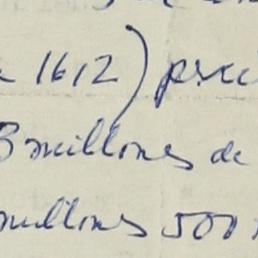 1612)
3 millones de
millones 500